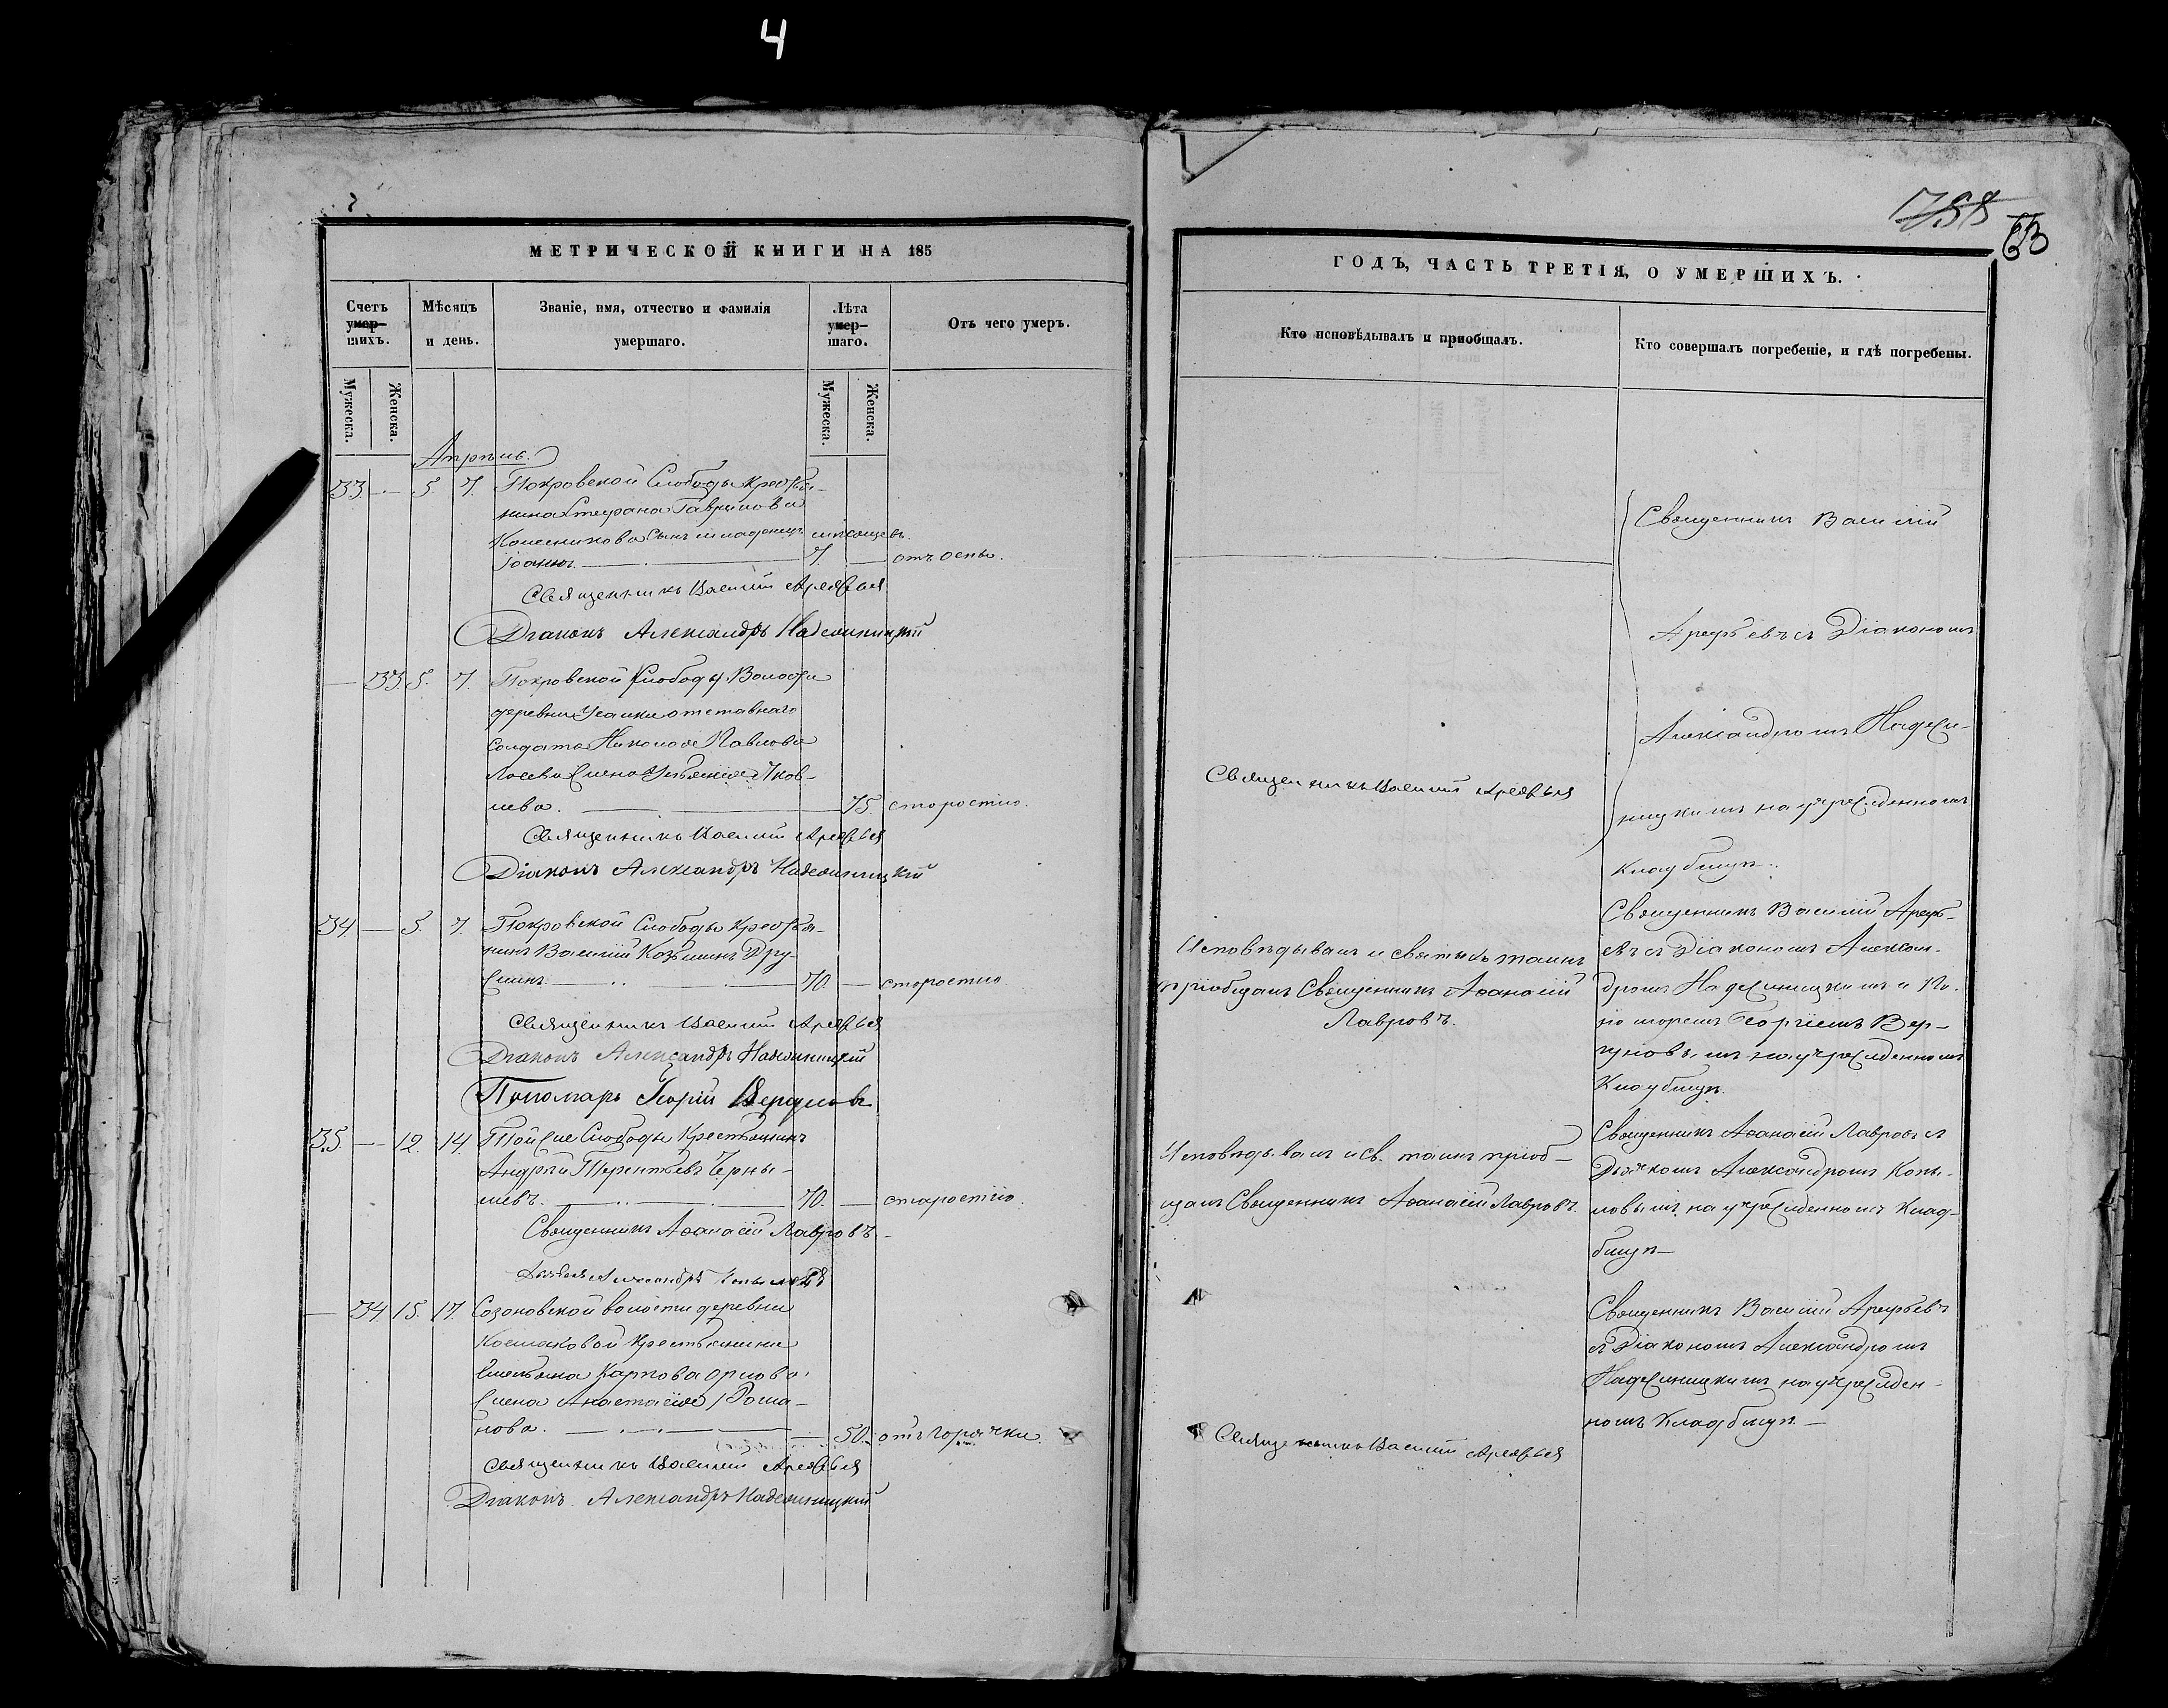 4
МЕТРИЧЕСКОЙ КНИГИ НА 185
Счетъ умер-шихъ.
Мѣсяцъ и день.
Званіе, имя, отчество и фамилія умершаго.
Лѣта умер-шаго.
Отъ чего умеръ.
Мужеска.
Женска.
Мужеска.
Женска.
Апрѣль.
33 — 5 7. Покровской Слободы крестья-
нина Стефана Гаврилова
Колесникова сынъ младенецъ мѣсяцевъ.
Іоаннъ. 7. — отъ оспы.
Священникъ Василій Арефьев
Діаконъ Александръ Надежницкій
— 33 5. 7. Покровской Слободы Волости
деревни отставнаго
солдата Николая Павлова
Лосева жена Яков-
лева. 75. старостію.
Священникъ Василій Арефьев
Діаконъ Александръ Надежницкій
34 — 5. 7. Покровской Слободы крестья-
нинъ Василій Козьминъ Дру-
жинъ. 70. — старостію
Священникъ Василій Арефьев
Діаконъ Александръ Надежницкій
Пономарь Георгій Вергунов
35 — 12. 14. Той же Слободы крестьянинъ
Андрей Терентьевъ Черны-
шевъ. 70. — старостію.
Священникъ Аѳанасій Лавровъ
Александръ Копыловъ
— 34 15. 17. Созоновской волости деревни
Космаковой крестьянина
Емельяна Карпова Орлова
жена Анастасія Рома-
нова. — 50. отъ горячки.
Священникъ Василій Арефьев
Діаконъ Александръ Надежницкій
788
63
ГОДЪ, ЧАСТЬ ТРЕТІЯ, О УМЕРШИХЪ.
Кто исповѣдывалъ и пріобщалъ.
Кто совершалъ погребеніе, и гдѣ погребены.
Священникъ Василій
Арефьевъ съ Діакономъ
Александромъ Надежи-
ницкимъ на учрежденномъ
кладбищѣ.
Священникъ Василій Арефьев
Исповѣдывалъ и святыхъ таинъ
пріобщалъ Священникъ Аѳанасій
Лавровъ.
Священникъ Василій Арефь-
евъ съ Діакономъ Алексан-
дромъ Надежницкимъ и По-
номоремъ Георгіемъ Вер-
гуновымъ на учрежденномъ
Кладбищѣ.
Исповѣдывалъ и св. таинъ пріоб-
щалъ Священникъ Аѳанасій Лавровъ.
Священникъ Аѳанасій Лавровъ съ
Дьячкомъ Александромъ Копы-
ловымъ на учрежденномъ Клад-
бищѣ
Священникъ Василій Арефьев
Священникъ Василій Арефьевъ
съ Діакономъ Александромъ
Надежницкимъ на учрежден-
номъ Кладбищѣ.